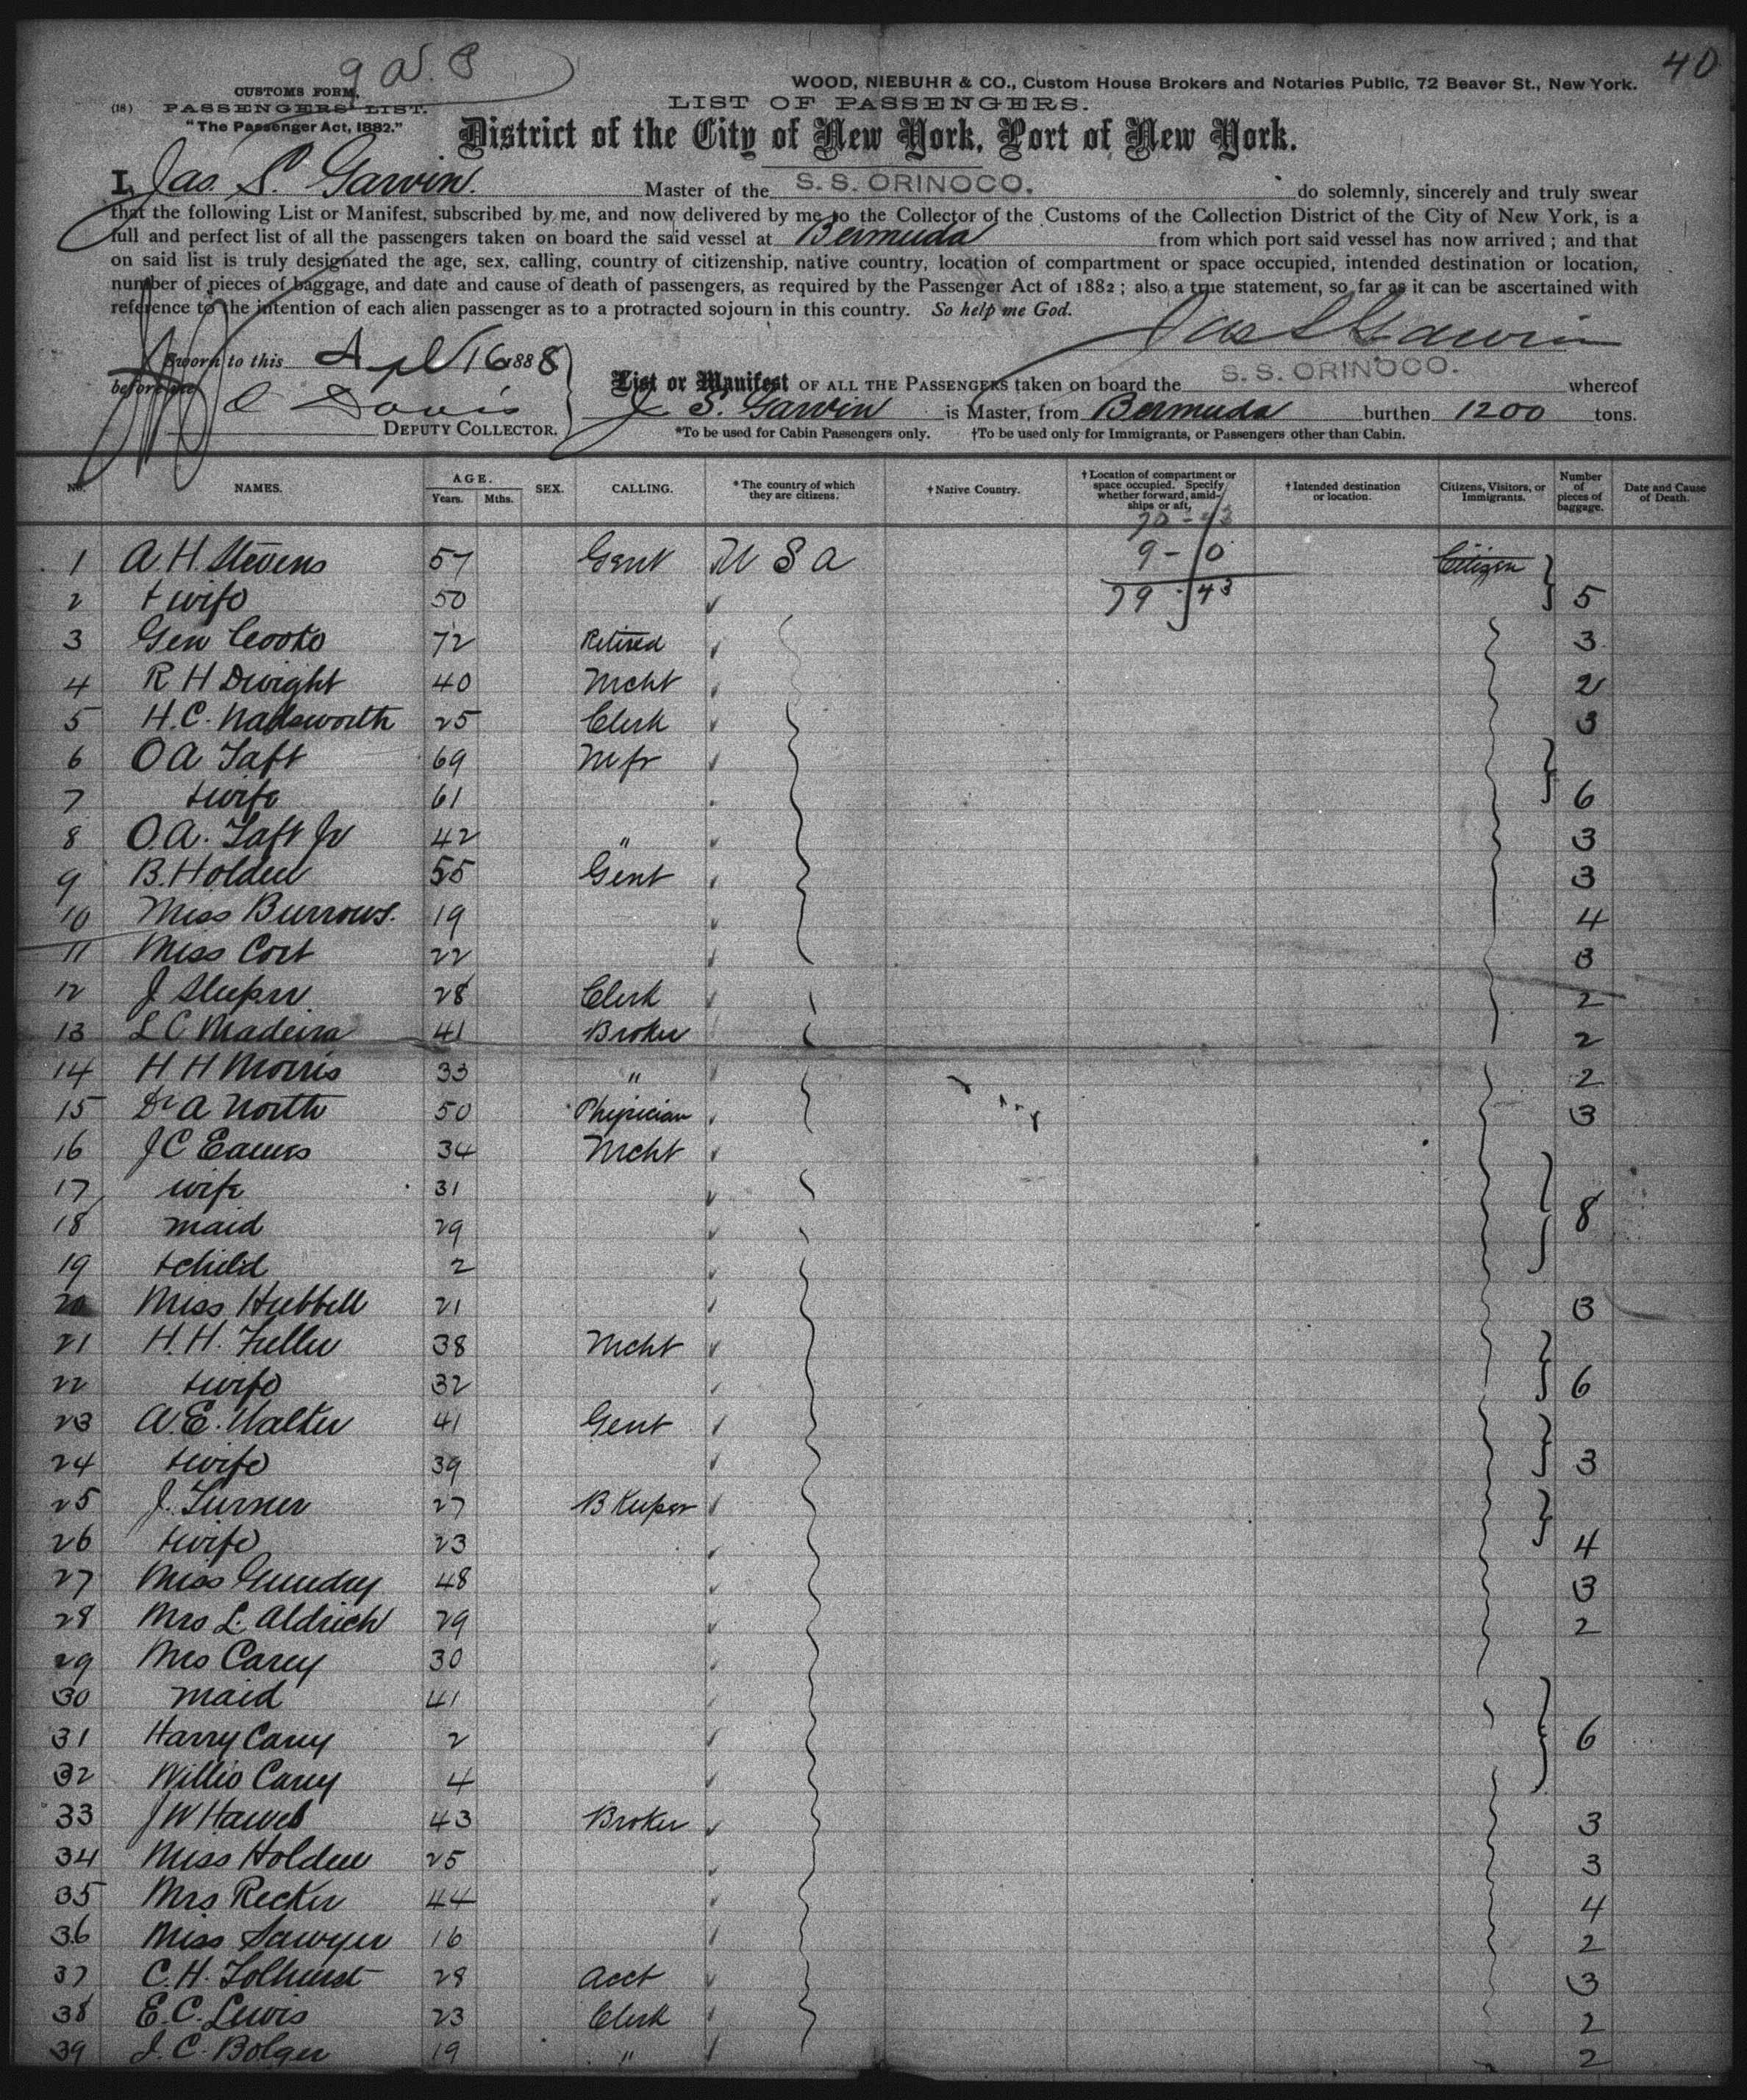 40
CUSTOMS FORM.
WOOD, NIEBUHR & CO., Custom House Brokers and Notaries Public, 72 Beaver St., New York.
(18) PASSENGERS' LIST.
LIST OF PASSENGERS.
"The Passenger Act, 1882."
District of the City of New York, Port of New York.
I, Jas. S. Garvin. Master of the S. S. ORINOCO. do solemnly, sincerely and truly swear
that the following List or Manifest, subscribed by me, and now delivered by me to the Collector of the Customs of the Collection District of the City of New York, is a
full and perfect list of all the passengers taken on board the said vessel at Bermuda from which port said vessel has now arrived ; and that
on said list is truly designated the age, sex, calling, country of citizenship, native country, location of compartment or space occupied, intended destination or location,
number of pieces of baggage, and date and cause of death of passengers, as required by the Passenger Act of 1882 ; also, a true statement, so far as it can be ascertained with
reference to the intention of each alien passenger as to a protracted sojourn in this country. So help me God.
Jas S Garvin
Sworn to this Apl 16 1888
before me
Davis
DEPUTY COLLECTOR.
List or Manifest OF ALL THE PASSENGERS taken on board the S. S. ORINOCO. whereof
J. S. Garvin is Master, from Bermuda burthen 1200 tons.
*To be used for Cabin Passengers only. †To be used only for Immigrants, or Passengers other than Cabin.
No. NAMES. AGE. Years. Mths. SEX. CALLING. *The country of which they are citizens. †Native Country. †Location of compartment or space occupied. Specify whether forward, amidships or aft. †Intended destination or location. Citizens, Visitors, or Immigrants. Number of pieces of baggage. Date and Cause of Death.
70 - 43
9 - 0
79 - 43
1 A. H. Stevens 57 Gent U S A Citizen
2 + wife 50 5
3 Gen Cooke 72 Retired 3
4 R H Dwight 40 Mcht 2
5 H. C. Wadsworth 25 Clerk 3
6 O A Taft 69 Mfr
7 + wife 61 6
8 O. A. Taft Jr 42 " 3
9 B. Holden 55 Gent 3
10 Miss Burrows. 19 4
11 Miss Cort 22 3
12 J Sleeper 28 Clerk 2
13 L C Madeira 41 Broker 2
14 H H Morris 33 " 2
15 Dr A North 50 Physician 3
16 J C Eames 34 Mcht
17 wife 31
18 maid 29 8
19 + child 2
20 Miss Hubbell 21 3
21 H. H. Fuller 38 Mcht
22 + wife 32 6
23 A. E. Walter 41 Gent
24 + wife 39 3
25 J. Turner 27 B Keeper
26 + wife 23 4
27 Miss Gundry 48 3
28 Mrs L. Aldrich 29 2
29 Mrs Carey 30
30 maid 41
31 Harry Carey 2 6
32 Willie Carey 4
33 J W Hawes 43 Broker 3
34 Miss Holden 25 3
35 Mrs Recker 44 4
36 Miss Sawyer 16 2
37 C. H. Tolhurst 28 Acct 3
38 E. C. Lewis 23 Clerk 2
39 J. C. Bolger 19 " 2